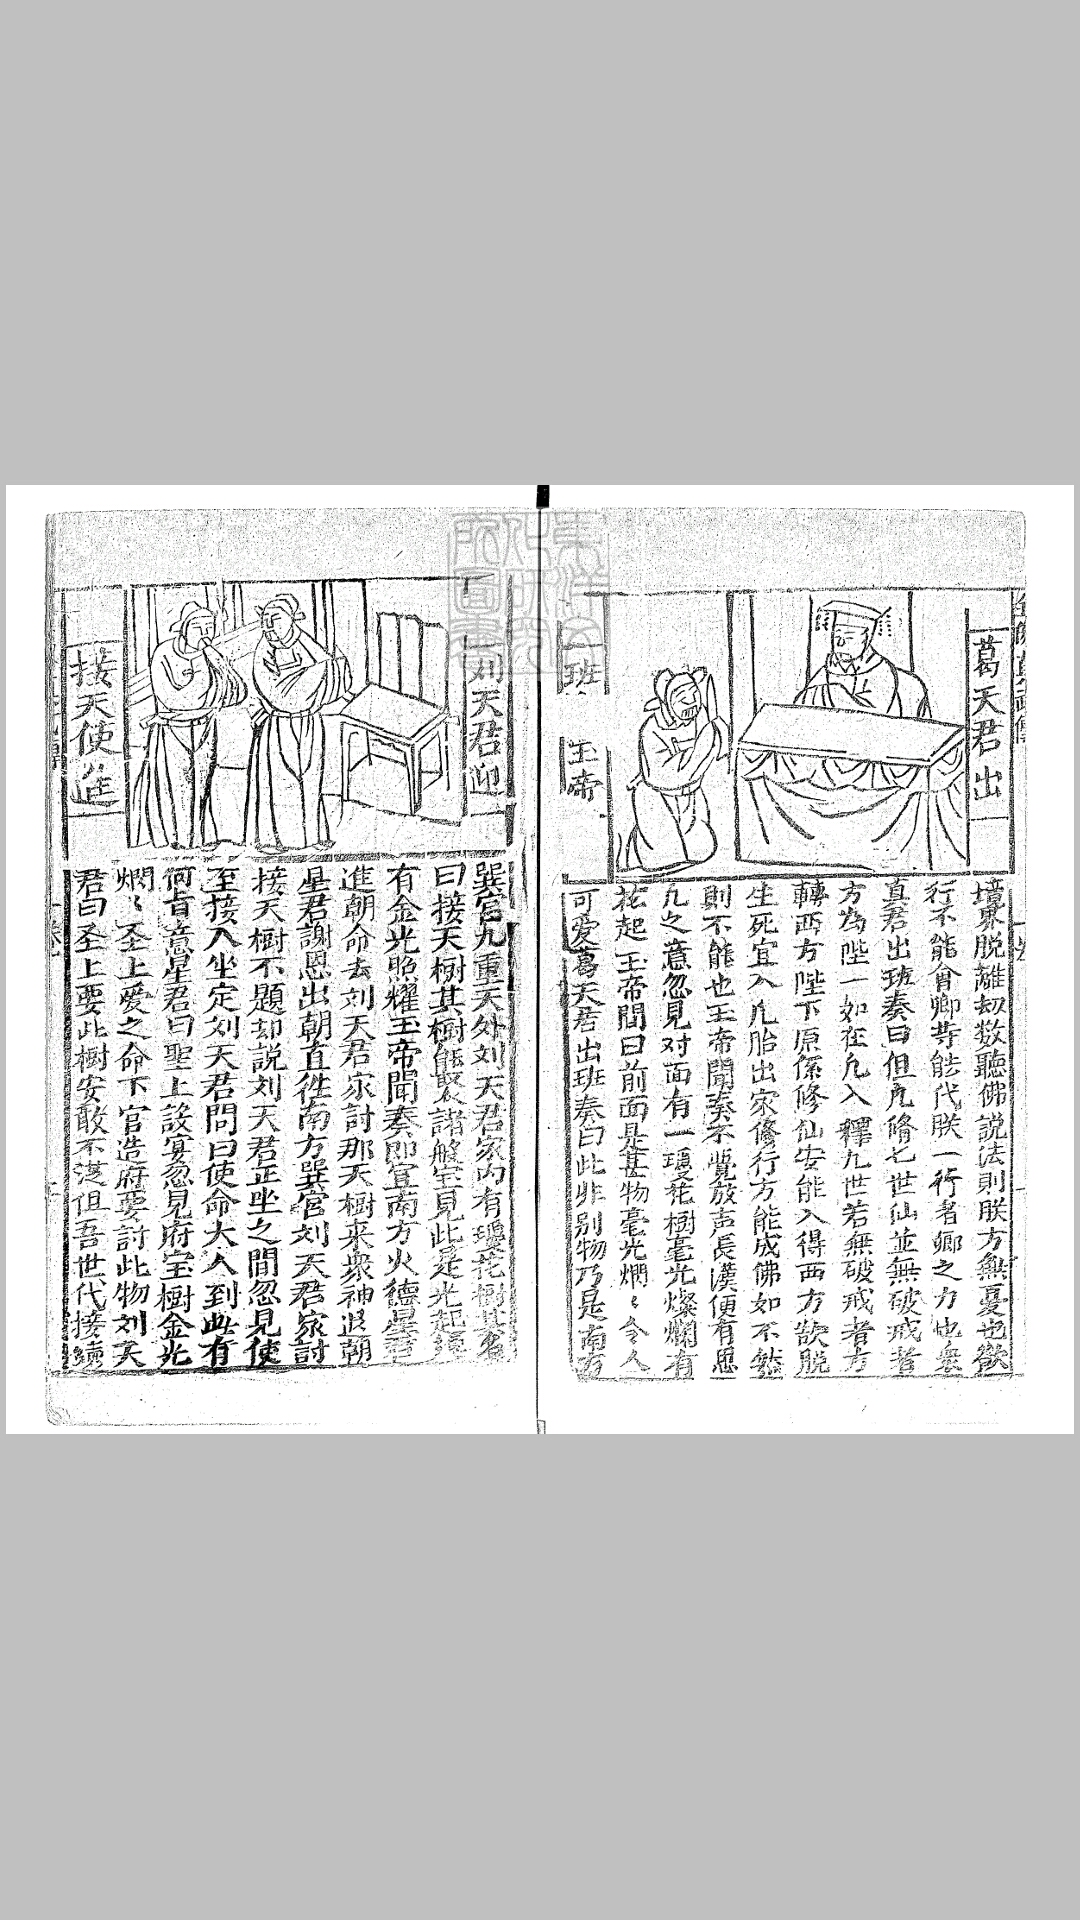 葛天君出
班
玉帝
境界脱離刼数聽佛説法則朕方無憂也歡
行不能會卿等能代朕一行者卿之力也衆
真君出班奏曰但凢脩七世仙並無破戒者
方為陛一如在凢入釋九世若無破戒者方
轉西方陛下原係修仙安能入得西方欲脱
生死宜入凢胎出家修行方能成佛如不然
則不能也玉帝聞奏不覺放声長漢便有思
凢之意忽見对面有一瓊花樹毫光燦爛有
花起玉帝問曰前面是甚物毫光燗〻令人
可爱葛天君出班奏曰此非别物乃是南方
刘天君迎
接天使進
巽宫九重天外刘天君家内有瓊花樹其名
曰接天樹其樹能聚諸般宝見此是光起
有金光照耀玉帝聞奏即宣南方火德星君
進朝命去刘天君家討那天樹来衆神退朝
星君謝恩出朝直徃南方巽宫刘天君家討
接天樹不題却説刘天君正坐之間忽見使
至接入坐定刘天君問曰使命大人到此有
何旨意星君曰聖上設宴忽見府宝樹金光
燗〻圣上爱之命下官造府要討此物刘天
君曰圣上要此樹安敢不送但吾世代接續